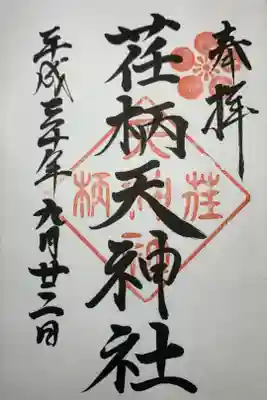 奉拝
荏柄天神社
荏柄天神社
平成三十年九月廿二日